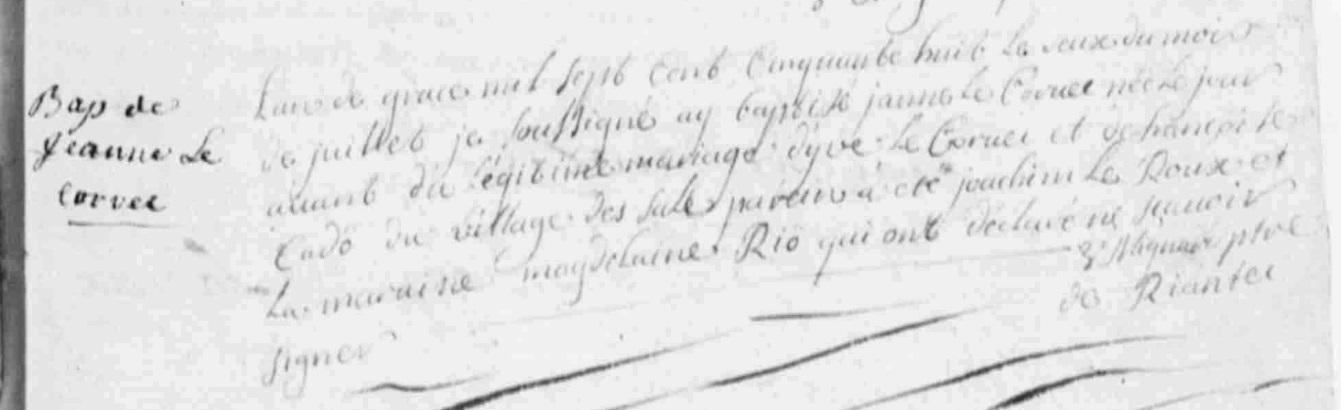 Bap de
jeanne Le
Corvec
Lan de grace mil sept cent cinquante huit Le deux du mois
de juillet je soussigné ay baptisé jeanne Le Corvec née Le jour
avant du légitime mariage d'yve Le Corvec et de
Cado du village des sales parein à eté joachim Le Roux et
La maraine magdelaine Rio qui ont déclaré ne scavoir
signer
ptre
de Riantec